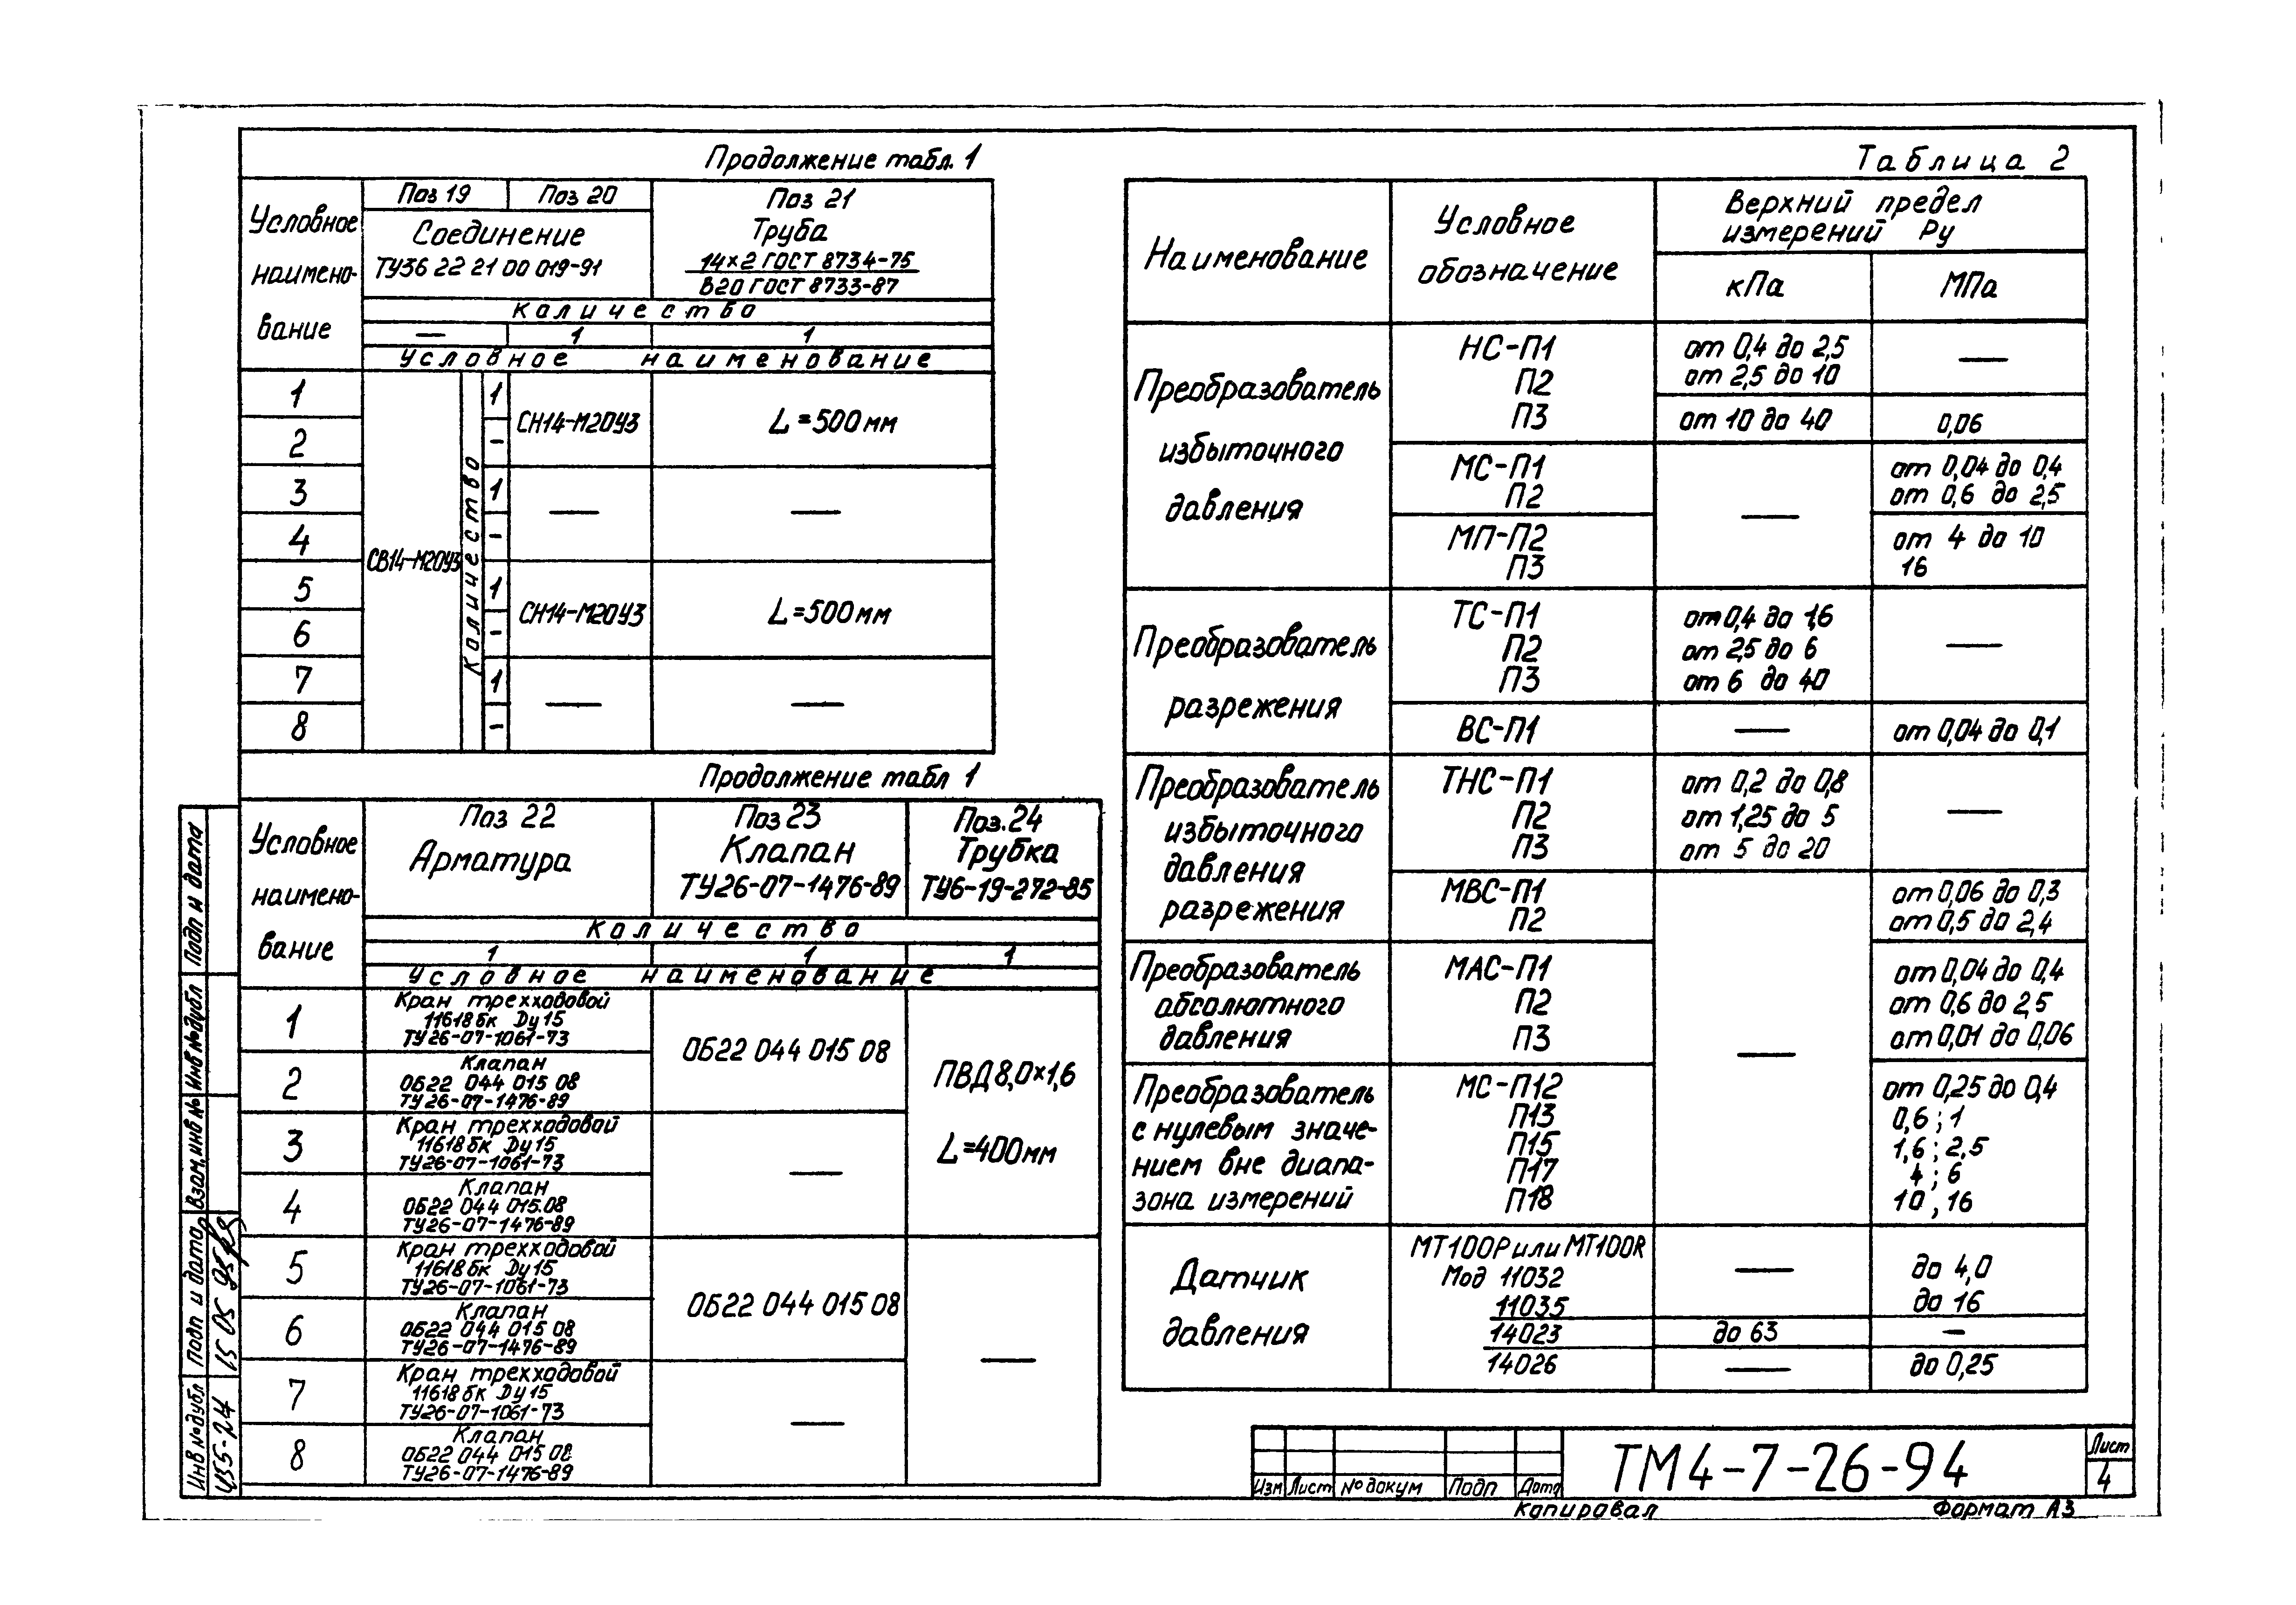 Продолжение табл. 1
Условное
наимено-
вание
Поз 19
Поз 20
Поз 21
Соединение
ТУ36 22 21 00 019-91
Труба
14×2 ГОСТ 8734-75
В20 ГОСТ 8733-87
Количество
—
1
1
Условное наименование
1
2
3
4
5
6
7
8
СВ14-М20У3
Количество
1
-
1
-
1
-
1
-
СН14-М20У3
L=500мм
—
—
СН14-М20У3
L=500мм
—
—
Продолжение табл 1
Условное
наимено-
вание
Поз 22
Арматура
Поз 23
Клапан
ТУ26-07-1476-89
Поз.24
Трубка
ТУ6-19-272-85
Количество
1
1
1
Условное наименование
1
Кран трехходовой
11б18бк Ду15
ТУ26-07-1061-73
2
Клапан
ОБ22 044 015 08
ТУ26-07-1476-89
ОБ22 044 015 08
3
Кран трехходовой
11б18бк Ду15
ТУ26-07-1061-73
4
Клапан
ОБ22 044 015.08
ТУ26-07-1476-89
—
ПВД8,0×1,6
L=400мм
5
Кран трехходовой
11б18бк Ду15
ТУ26-07-1061-73
6
Клапан
ОБ22 044 015 08
ТУ26-07-1476-89
ОБ22 044 015 08
7
Кран трехходовой
11б18бк Ду15
ТУ26-07-1061-73
8
Клапан
ОБ22 044 015 08
ТУ26-07-1476-89
—
—
Таблица 2
Наименование
Условное
обозначение
Верхний предел
измерений Ру
кПа
МПа
Преобразователь
избыточного
давления
НС-П1
П2
П3
от 0,4 до 2,5
от 2,5 до 10
—
от 10 до 40
0,06
МС-П1
П2
—
от 0,04 до 0,4
от 0,6 до 2,5
МП-П2
П3
от 4 до 10
16
Преобразователь
разрежения
ТС-П1
П2
П3
от 0,4 до 1,6
от 2,5 до 6
от 6 до 40
—
ВС-П1
—
от 0,04 до 0,1
Преобразователь
избыточного
давления
разрежения
ТНС-П1
П2
П3
от 0,2 до 0,8
от 1,25 до 5
от 5 до 20
—
МВС-П1
П2
от 0,06 до 0,3
от 0,5 до 2,4
Преобразователь
абсолютного
давления
МАС-П1
П2
П3
—
от 0,04 до 0,4
от 0,6 до 2,5
от 0,01 до 0,06
Преобразователь
с нулевым значе-
нием вне диапа-
зона измерений
МС-П12
П13
П15
П17
П18
от 0,25 до 0,4
0,6; 1
1,6; 2,5
4; 6
10, 16
Датчик
давления
МТ100Р или МТ100R
Мод 11032
11035
—
до 4,0
до 16
14023
до 63
—
14026
—
до 0,25
Изм
Лист
№ докум
Подп
Дата
ТМ4-7-26-94
Лист
4
Копировал
Формат А3
Подп и дата
Инв №дубл
Взам.инв №
Подп и дата
15 05 95
Инв №дубл